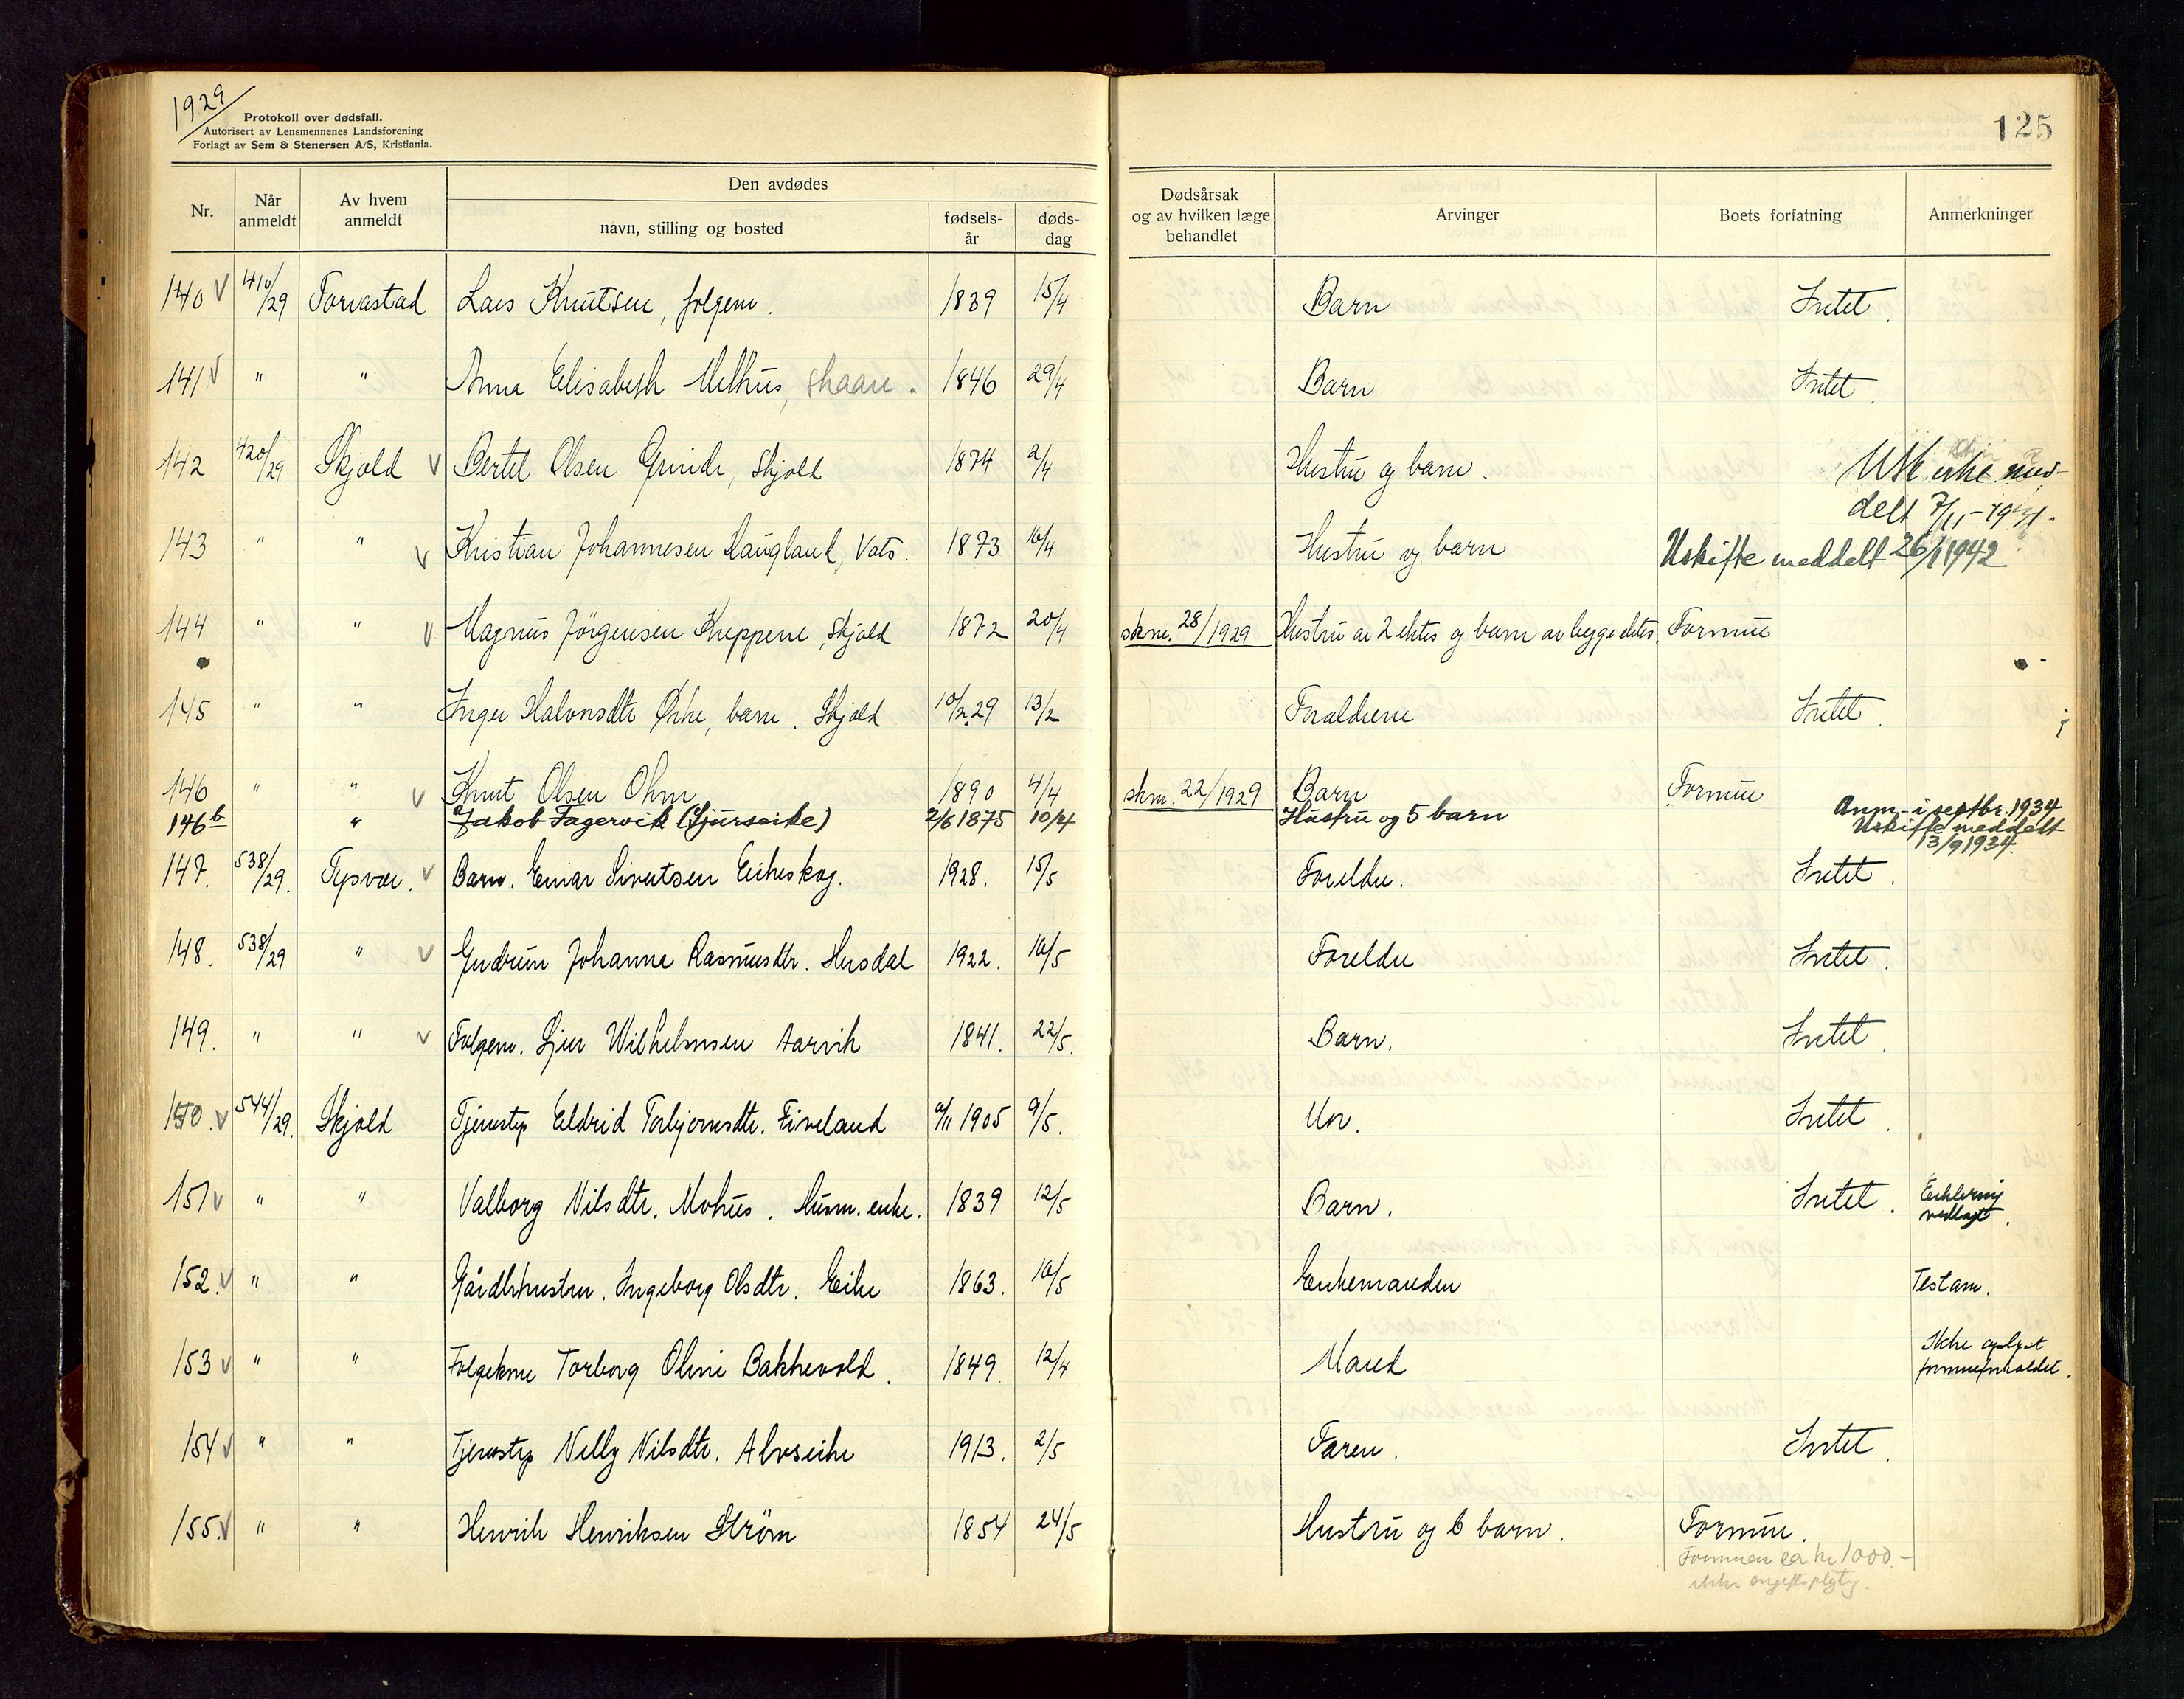 1929
Protokoll over dødsfall.
Autorisert av Lensmennenes Landsforening
Forlagt av Sem & Stenersen A/S, Kristiania.
125
Nr. Når anmeldt Av hvem anmeldt Den avdødes navn, stilling og bosted fødsels-år døds-dag Dødsårsak og av hvilken læge behandlet Arvinger Boets forfatning Anmerkninger
140 v 410/29 Torvastad Lars Knutsen, folgem. 1839 15/4 Barn Intet.
141 v " " Anna Elisabeth Melhus, Skaare. 1846 29/4 Barn Intet.
142 420/29 Skjold v Bertel Olsen Grinde, Skjold 1874 2/4 Hustru og barn.
delt 7/11-1931.
143 " " v Kristian Johannesen Haugland, Vats. 1873 16/4 Hustru og barn Uskifte meddelt 26/1 1942
144 " " v Magnus Jörgensen Kreppene, Skjold 1872 20/4 skm. 28/1929 Hustru av 2 ektes og barn av begge ektes. Formue
145 " " Inger Halvorsdtr Ørke, barn. Skjold 10/2 29 13/2 Foraldrene Intet.
146 " " v Knut Olsen Ohm 1890 4/4 skm. 22/1929 Barn Formue
146 b " Jakob Fagervik (Sjurseike) 2/6 1875 10/4 Hustru og 5 barn Anm. i septbr. 1934
Uskifte meddelt
13/9 1934.
147. 538/29. Tysvær. v Barn. Einar Sivertsen Eikeskog. 1928. 15/5 Foreldre. Intet.
148. 538/29 " v Gudrun Johanne Rasmusdtr. Husdal 1922. 16/5 Foreldre Intet.
149. " " v Folgem. Sjur Wilhelmsen Aarvik 1841. 22/5. Barn. Intet.
150. v 544/29. Skjold Tjenestep Eldrid Torbjornsdtr. Fiveland /11 1905 9/5. Mor. Intet.
151 v " " Valborg Nilsdtr. Mohus. Husm. enke. 1839 12/5 Barn. Intet. Erklering
vedlagt.
152. v " " Gårdbrhustru. Ingeborg Olsdtr. Eike 1863. 16/5 Enkemanden Testam.
153 v " " Folgekone Torborg Oline Bakkevold. 1849 12/4 Mand Ikke oplyst
formueforholdet.
154 v " " Tjenestep Nelly Nilsdtr. Alvseike 1913. 2/5 Faren. Intet.
155. v " " Henrik Henriksen Strøm 1854 24/5 Hustru og 6 barn. Formue.
Formuen ca kr 1000.-
ikke avgiftspligtig.